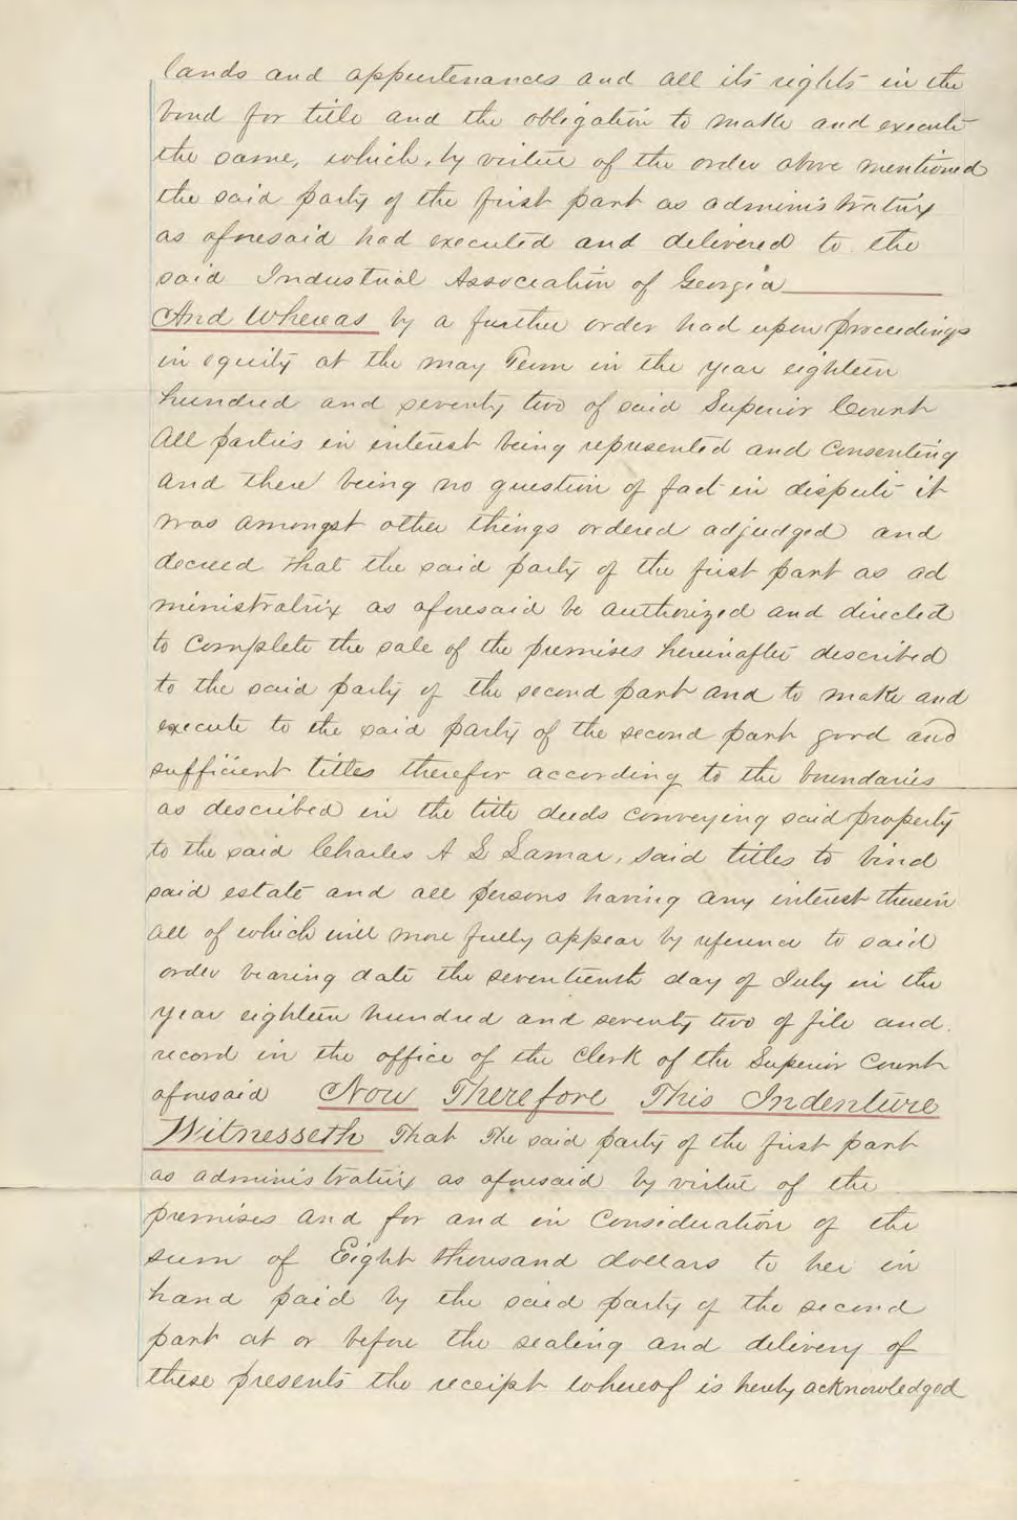 lands and appurtenances and all its rights in the
bond for title and the obligation to make and execute
the same, which, by virtue of the order above mentioned
the said party of the first part as administratrix
as aforesaid had executed and delivered to the
said Industrial Association of Georgia
And Whereas by a further order had upon proceedings
in equity at the may Term in the year eighteen
hundred and seventy two of said Superior Court
All parties in interest being represented and Consenting
and there being no question of fact in dispute it
was amongst other things ordered adjudged and
decreed that the said party of the first part as ad
ministratrix as aforesaid be authorized and directed
to Complete the sale of the premises hereinafter described
to the said party of the second part and to make and
execute to the said party of the second part good and
sufficient titles therefor according to the boundaries
as described in the title deeds conveying said property
to the said Charles A L Lamar, said titles to bind
said estate and all persons having any interest therein
all of which will more fully appear by reference to said
order bearing date the seventeenth day of July in the
year eighteen hundred and seventy two of file and
record in the office of the Clerk of the Superior Court
aforesaid Now Therefore This Indenture
Witnesseth That The said party of the first part
as administratrix as aforesaid by virtue of the
premises and for and in Consideration of the
sum of Eight thousand dollars to her in
hand paid by the said party of the second
part at or before the sealing and delivery of
these presents the receipt whereof is hereby acknowledged